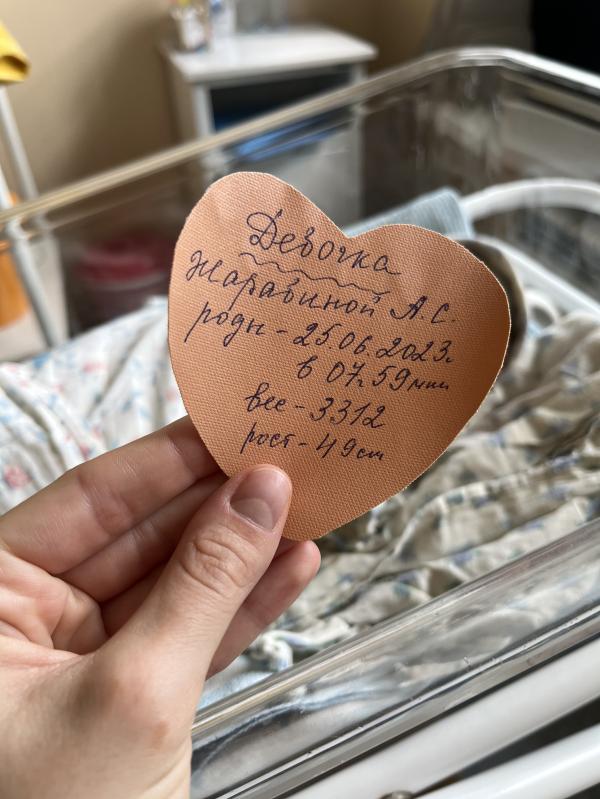 Девочка
Жаравиной А.С.
родн - 25.06.2023г
в 07ч 59мин
вес - 3312
рост - 49см